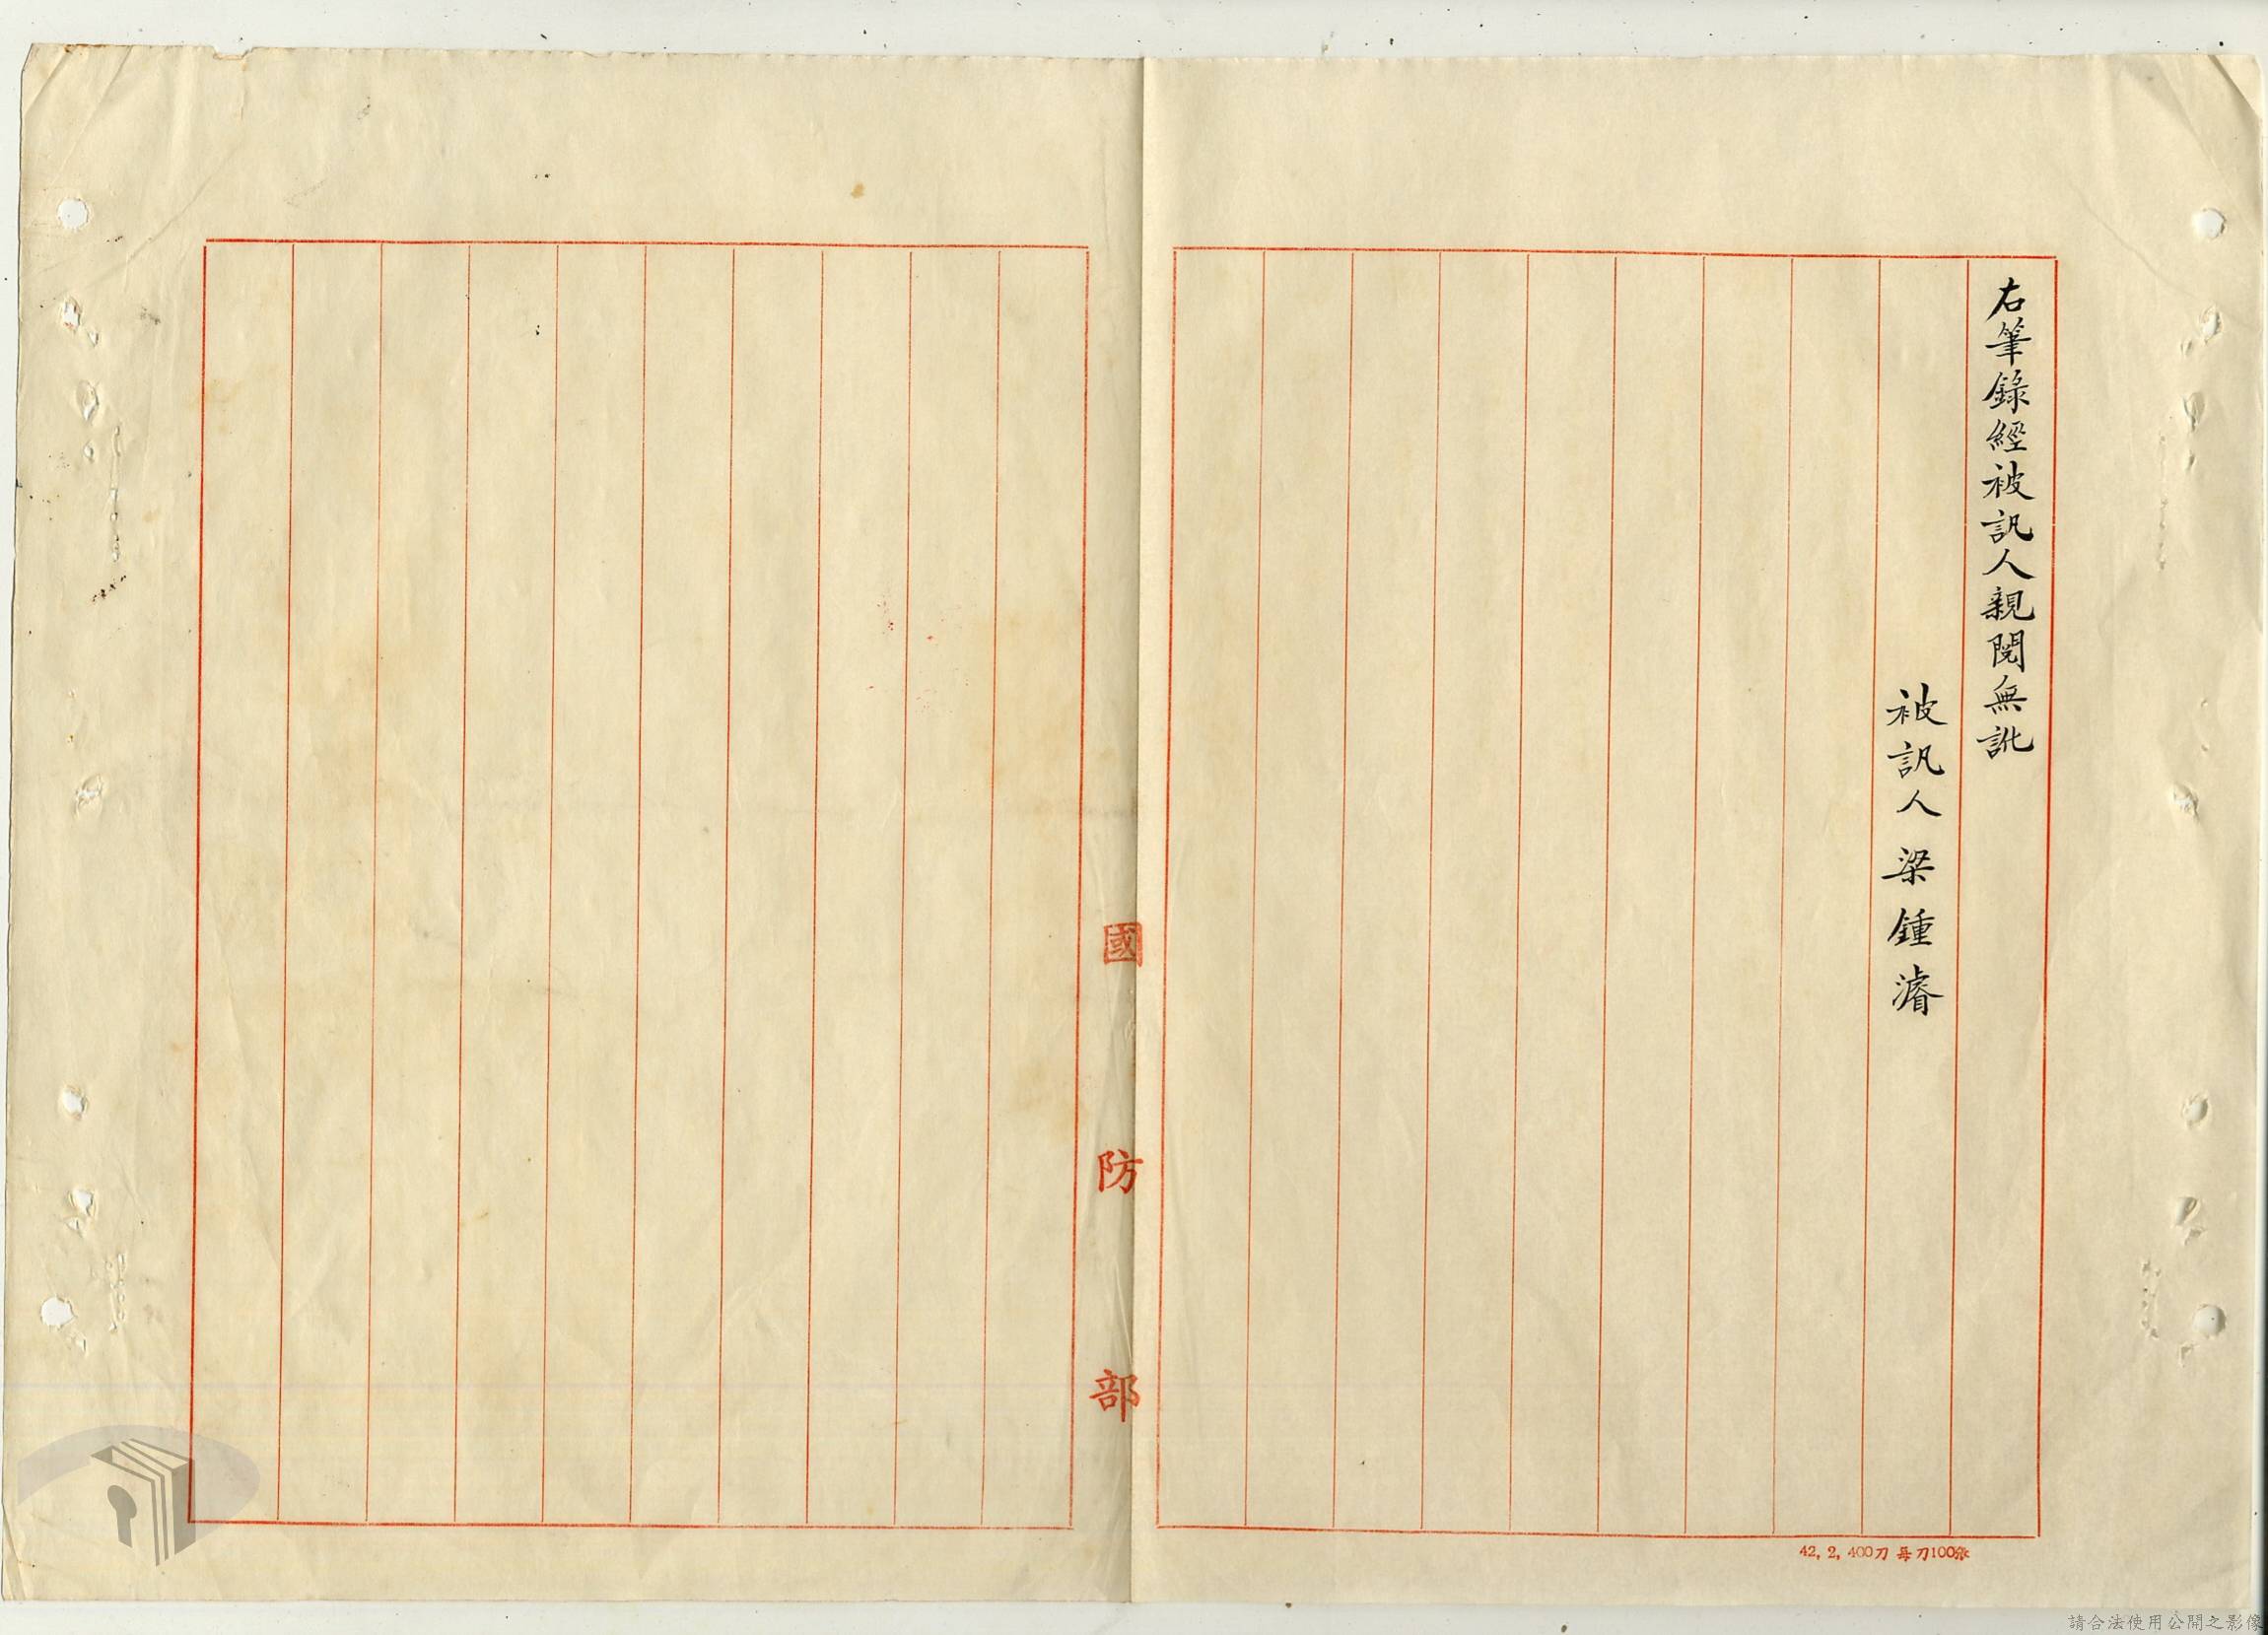 右筆錄經被訊人親閱無訛
被訊人 梁鍾濬
國防部
42, 2, 400刀 每刀100張
請合法使用公開之影像